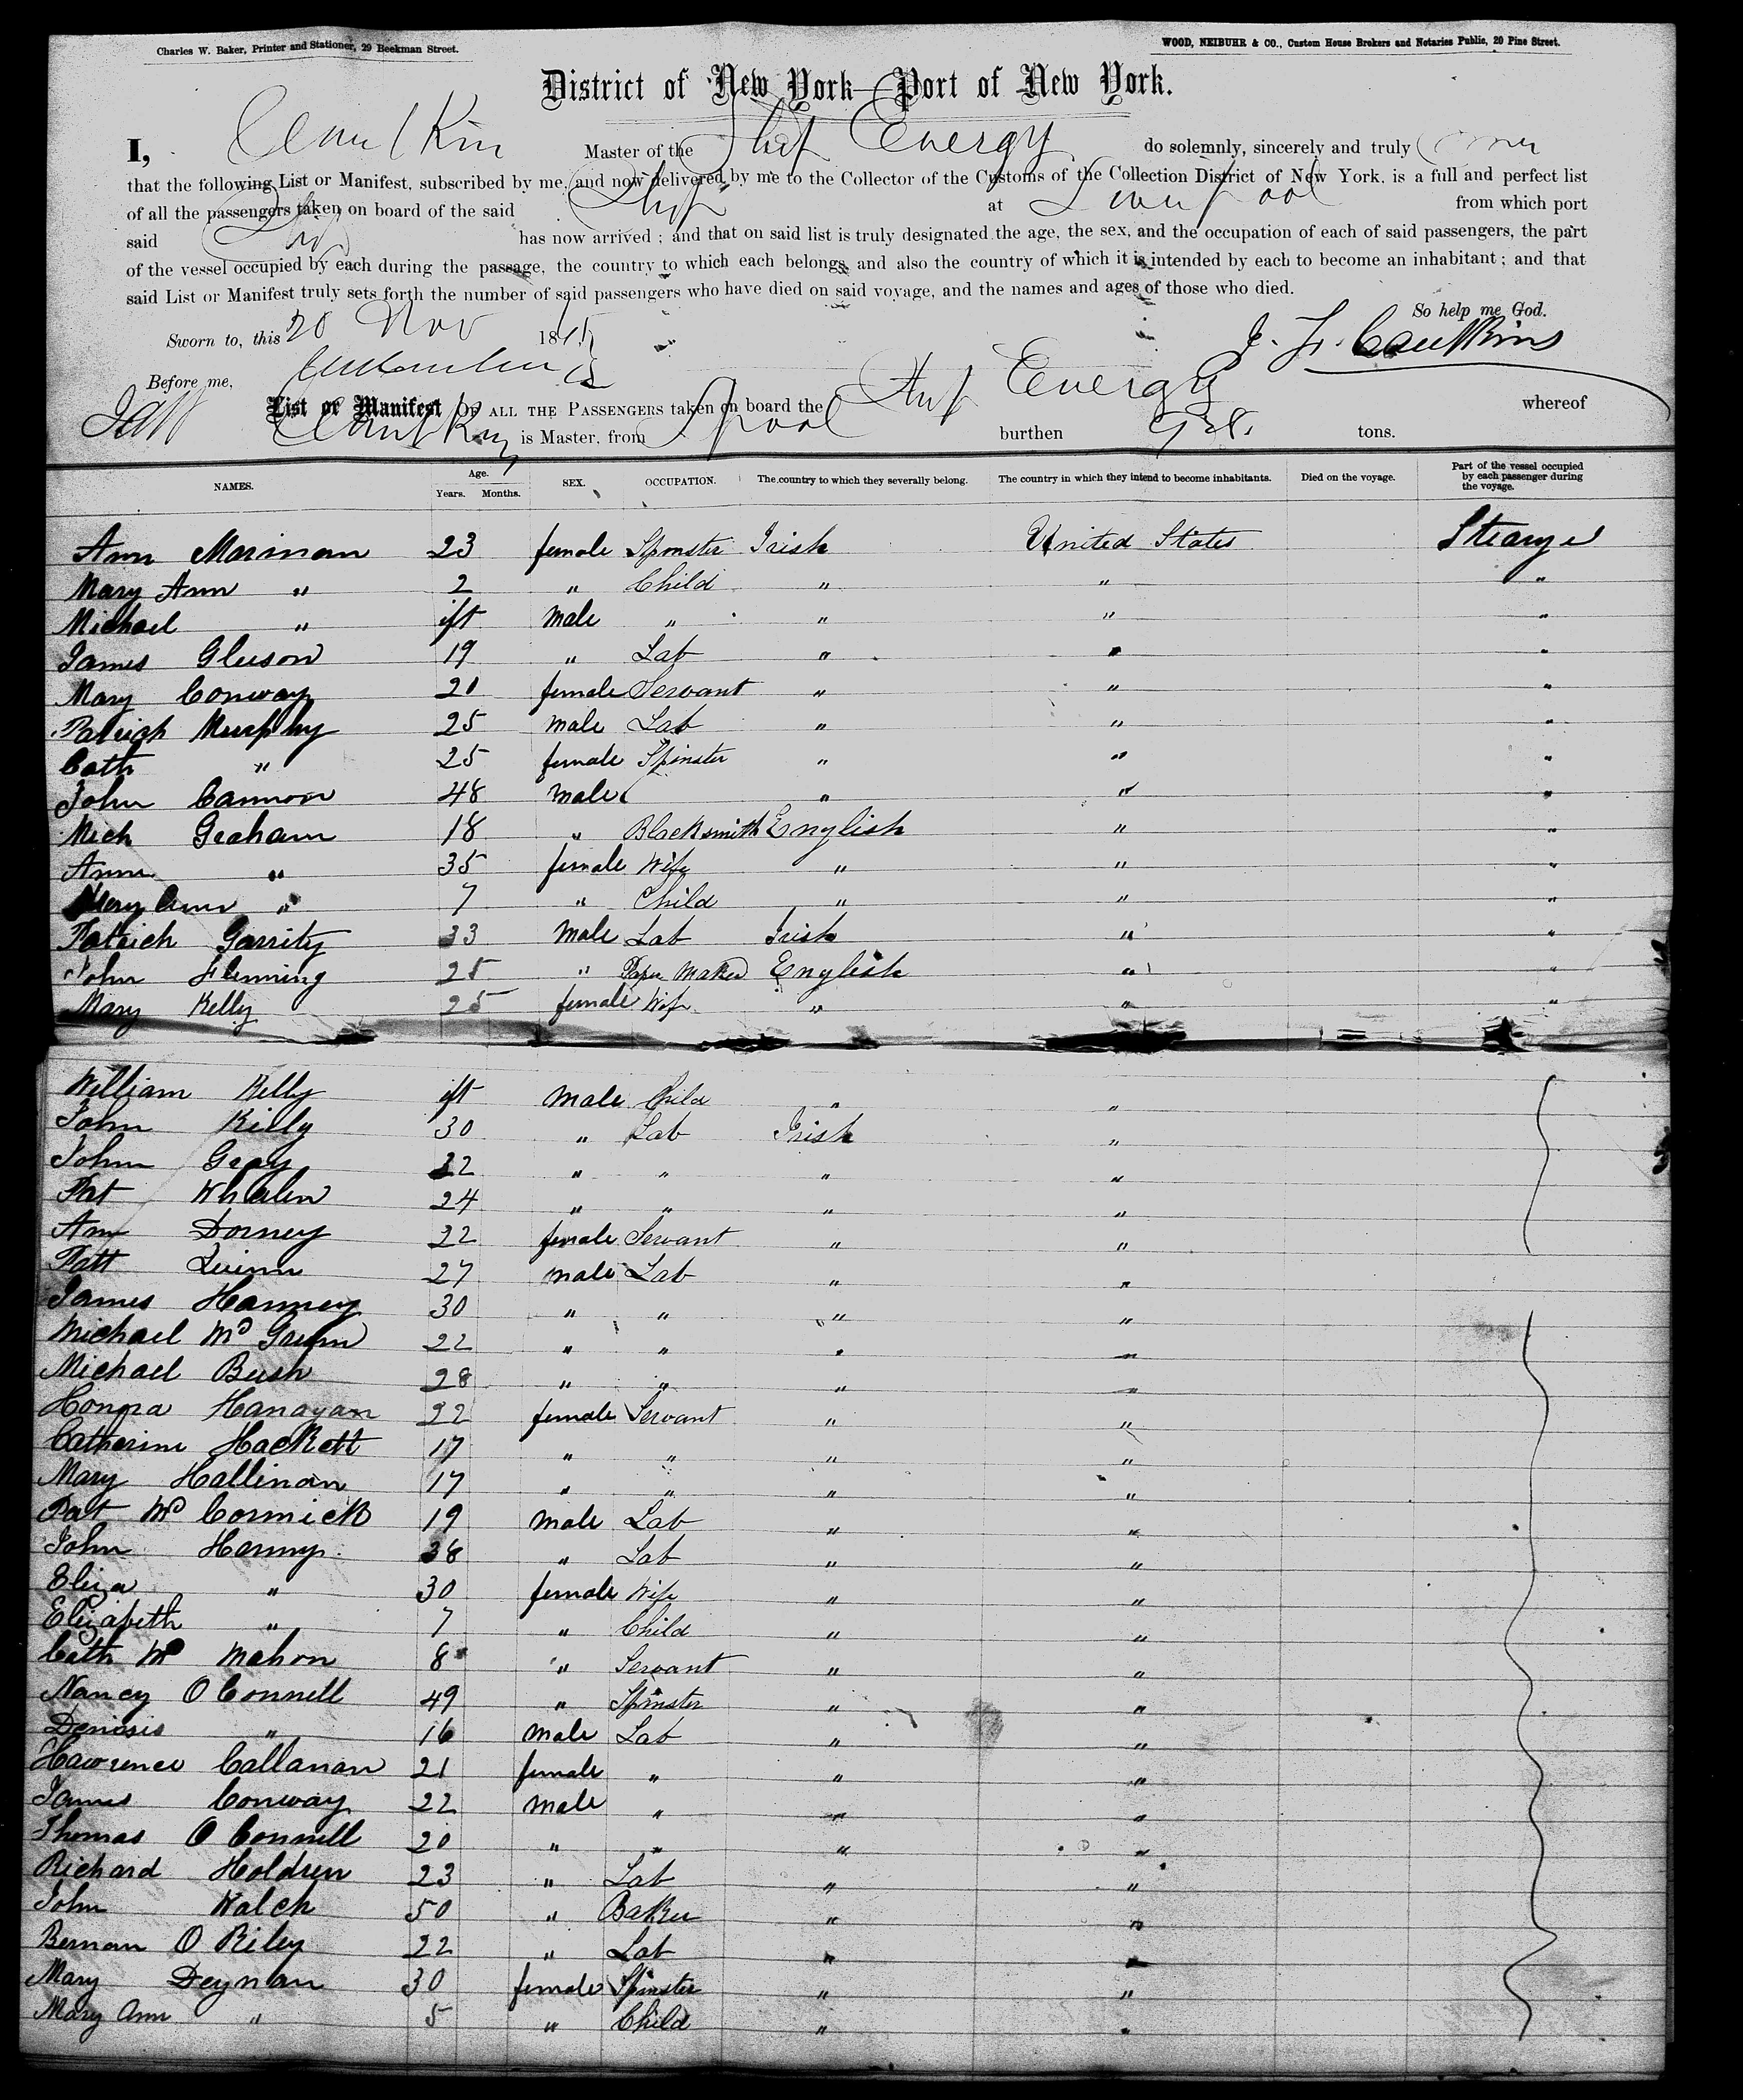 Charles W. Baker, Printer and Stationer, 29 Beekman Street.
WOOD, NEIBUHR & CO., Custom House Brokers and Notaries Public, 20 Pine Street.
District of New York—Port of New York.
I, Master of the Ship Energy do solemnly, sincerely and truly
that the following List or Manifest, subscribed by me, and now delivered by me to the Collector of the Customs of the Collection District of New York, is a full and perfect list
of all the passengers taken on board of the said Ship at Liverpool from which port
said Ship has now arrived ; and that on said list is truly designated the age, the sex, and the occupation of each of said passengers, the part
of the vessel occupied by each during the passage, the country to which each belongs, and also the country of which it is intended by each to become an inhabitant ; and that
said List or Manifest truly sets forth the number of said passengers who have died on said voyage, and the names and ages of those who died.
So help me God.
Sworn to, this 20 Nov 186
Before me,
List or Manifest OF ALL THE PASSENGERS taken on board the Ship Energy whereof
is Master, from Lpool burthen tons.
NAMES. Age. Years. Months. SEX. OCCUPATION. The country to which they severally belong. The country in which they intend to become inhabitants. Died on the voyage. Part of the vessel occupied by each passenger during the voyage.
Ann Marinan 23 female Spinster Irish United States Stearge
Mary Ann " 2 " Child " " "
Michael " ift male " " " "
James Gleeson 19 " Lab " " "
Mary Conway 20 female Servant " " "
Patrick Murphy 25 male Lab " " "
Cath " 25 female Spinster " " "
John Cannon 48 male " " "
Mich Graham 18 " Blacksmith English " "
Ann " 35 female Wife " " "
Mary Ann " 7 " Child " " "
Patrick Garrity 33 male Lab Irish " "
John Fleming 25 " Paper Maker English " "
Mary Kelly 25 female Wife " " "
William Kelly ift male Child " "
John Kelly 30 " Lab Irish "
John Gray 32 " " " "
Pat Whalen 24 " " " "
Ann Dorney 22 female Servant " "
Patt Quinn 27 male Lab " "
James Hanney 30 " " " "
Michael Mc 22 " " " "
Michael Bush 28 " " " "
Honora Hanagan 22 female Servant " "
Catherine Hackett 17 " " " "
Mary Hallinan 17 " " " "
Pat Mc Cormick 19 male Lab " "
John 38 " Lab " "
Eliza " 30 female Wife " "
Elizabeth " 7 " Child " "
Cath Mc Mahon 8 " Servant " "
Nancy O Connell 49 " Spinster " "
" 16 male Lab " "
Lawrence Callanan 21 female " " "
James Conway 22 male " " "
Thomas O Connell 20 " " " "
Richard Holdren 23 " Lab " "
John Walch 50 " Baker " "
Bernan O Riley 22 " Lab " "
Mary Deynan 30 female Spinster " "
Mary Ann " 5 " Child " "